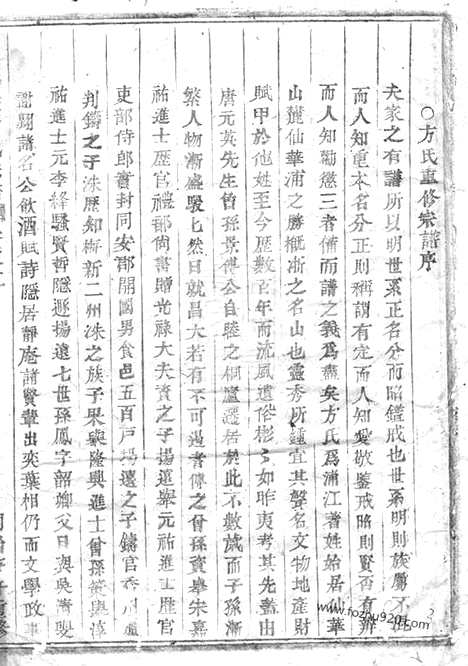 ○方氏重修宗譜序
夫家之有譜所以明世系正名分而昭鑑戒也世系明則族屬不
而人知重本名分正則稱謂有定而人知愛敬鑒戒昭則賢否有辨
而人知勸懲三者備而譜之義爲盡矣方氏爲浦江著姓始居仙華
山麓仙華浦之勝槪浙之名山也靈秀所鍾宜其聲名文物地產財
賦甲於他姓至今歷數百年而流風遺俗彬彬如昨夷考其先蓋由
唐元英先生曾孫景傅公自睦之桐廬遷居於此不數歲而子孫漸
繁人物漸盛駸駸然日就昌大若有不可遏者傳之曾孫資舉朱嘉
祐進士歷官禮部尙書贈光祿大夫資之子揚遠舉元祐進士歷官
吏部侍郎賣封同安郡開國男食邑五百戶揚遠之子鑄官
判鑄之子洙歷知衡新二州洙之族子果與隆興進士曾孫策與淳
祐進士元李絳騷賢哲隱遯揚遠七世孫鳳字韶卿父日與吳
謝翶諸名公飲酒賦詩隱居靜庵諸賢輩出奕葉相仍而文學政事
www.fozhu920.com